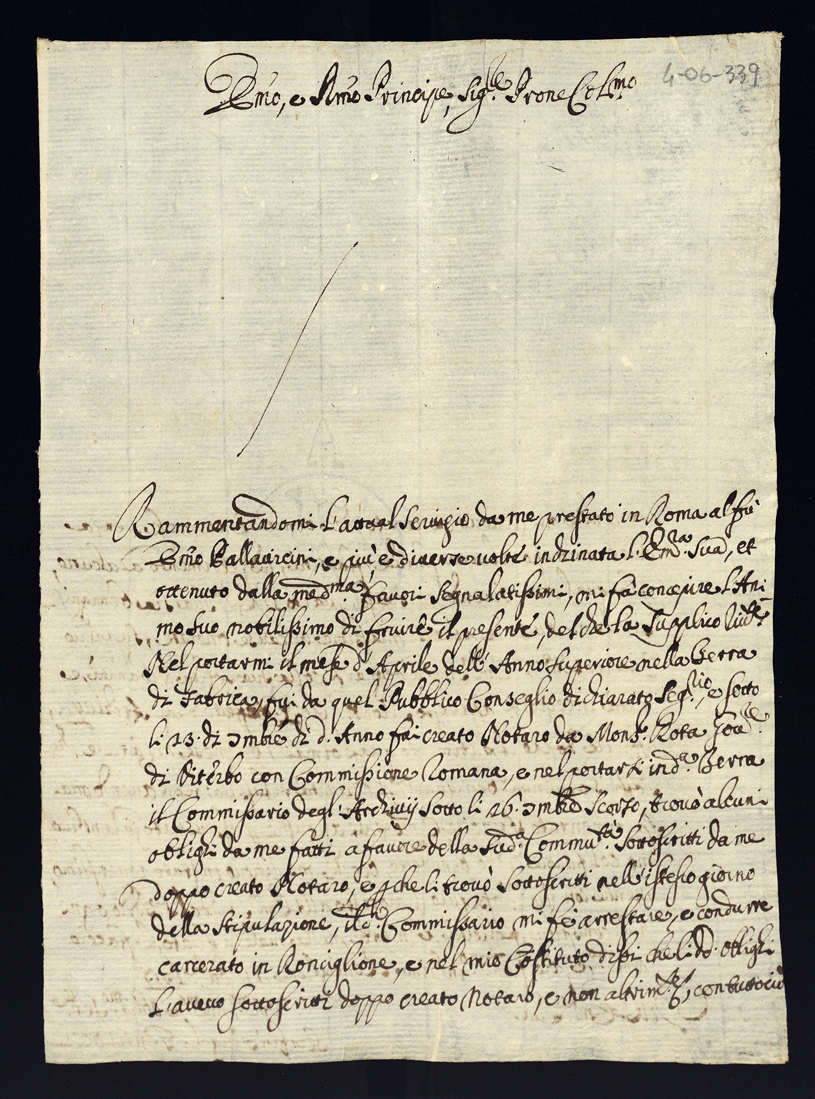 4-06-339
Emo, e Rmo Principe, Sig.re Prone Colmo
Rammentandomi l'attual Servigio da me prestato in Roma al fù
Emo Pallavicini, e più, e diverse volte indrinata l'Em.a Sua, et
ottenuto dalla med.ma favori segnalatissimi, mi fà concepire l'Ani-
mo suo nobilissimo di fruire il presente, del che la supplico
Nel portarmi il mese d'Aprile dell'Anno superiore nella Terra
di Fabrica, fui da quel Pubblico Conseglio dichiarato Seg.rio, e sotto
li 23. di 9mbre di d. Anno fui creato Notaro da Mons.r Rota
di Viterbo con Commissione Romana, e nel portarsi in d.a Terra
il Commissario degl'Archivij sotto li 26. 9mbre scorso, trovò alcuni
oblighi da me fatti à favore della Sud.a Commu.tà sottoscritti da me
doppo creato Notaro, e pche li trovò sottoscritti nell'istesso giorno
della stipulazione, il d.o Commissario mi fè arrestare, e condurre
carcerato in Ronciglione, e nel mio Costituto dissi che li dd. oblighi
l'avevo sottoscritti doppo creato Notaro, e non altrim.ti, contuttociò